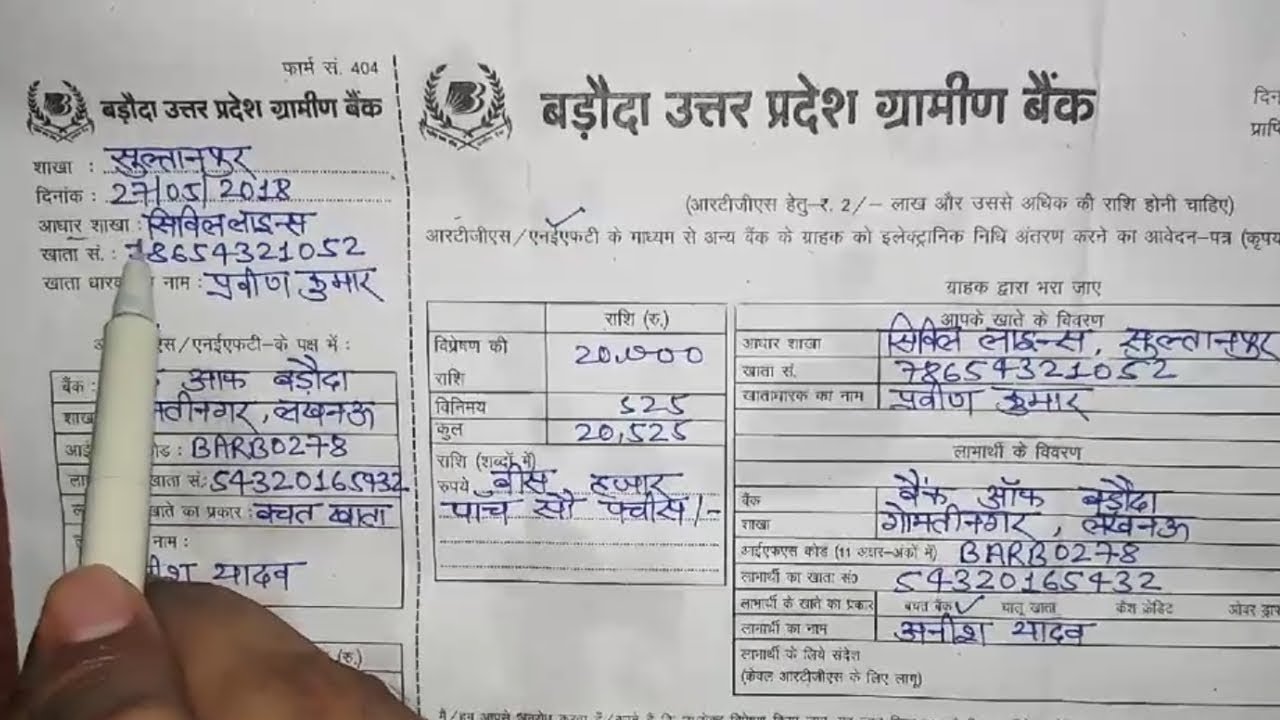 फार्म सं. 404
बड़ौदा उत्तर प्रदेश ग्रामीण बैंक
शाखा : सुल्तानपुर
दिनांक : 27/05/2018
आधार शाखा : सिविल लाइन्स
खाता सं. : 78654321052
खाता धारक नाम : प्रवीण कुमार
एस/एनईएफटी-के पक्ष में :
बैंक : आफ बड़ौदा
शाखा मतीनगर, लखनऊ
आई कोड : BARB0278
ला खाता सं.: 54320165432
खाते का प्रकार : बचत खाता
नाम :
ीश यादव
(रु.)
बड़ौदा उत्तर प्रदेश ग्रामीण बैंक
दिन
प्राप्ति
(आरटीजीएस हेतु-रु. 2/- लाख और उससे अधिक की राशि होनी चाहिए)
आरटीजीएस/एनईएफटी के माध्यम से अन्य बैंक के ग्राहक को इलेक्ट्रानिक निधि अंतरण करने का आवेदन-पत्र (कृपय
राशि (रु.)
विप्रेषण की राशि 20,000
विनिमय 525
कुल 20,525
राशि (शब्दों में)
रुपये बीस हजार
पाच सौ पच्चीस/-
ग्राहक द्वारा भरा जाए
आपके खाते के विवरण
आधार शाखा सिविल लाइन्स, सुल्तानपुर
खाता सं. 78654321052
खाताधारक का नाम प्रवीण कुमार
लाभार्थी के विवरण
बैंक बैंक ऑफ बड़ौदा
शाखा गोमतीनगर, लखनऊ
आईएफएस कोड (11 अक्षर-अंकों में) BARB0278
लाभार्थी का खाता सं0 54320165432
लाभार्थी के खाते का प्रकार बचत बैंक ✓ चालू खाता कैश क्रेडिट ओवर ड्राफ
लाभार्थी का नाम अनीश यादव
लाभार्थी के लिये संदेश
(केवल आरटीजीएस के लिए लागू)